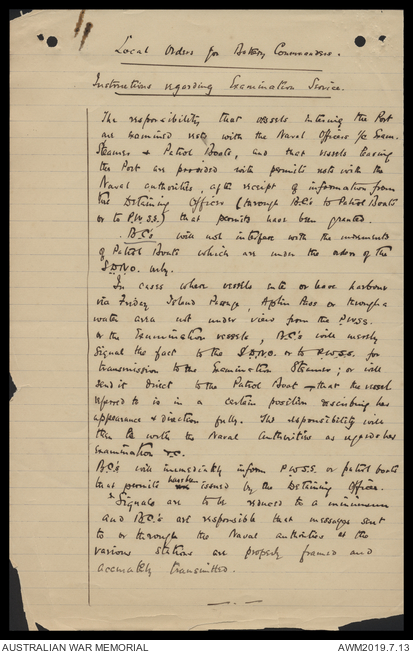 Local Orders for Battery Commanders.
Instructions regarding Examination Service.
The responsibility that vessels entering the Port
are examined rests with the Naval Officers i/c Exam.
Steamer & Patrol Boats, and that vessels leaving
the Port are provided with permits rests with the
Naval authorities, after receipt of information from
the Detaining Officer (through B.C's to Patrol Boats
or to P.W.S.S.) that permits have been granted.
B.C's will not interfere with the movements
of Patrol Boats which are under the orders of the
S.D.N.O. only.
In cases where vessels enter or leave harbour
via Friday Island Passage, Aplin Pass or through a
water area not under view from the P.W.S.S.
or the Examination vessels, B.C's will merely
signal the fact to the S.D.N.O. or to P.W.S.S. for
transmission to the Examination Steamer; or will
send it direct to the Patrol Boat that the vessel
referred to is in a certain position describing her
appearance & direction fully. The responsibility will
then be with the Naval Authorities as regards her
examination &c.
B.C's will immediately inform P.W.S.S. or patrol boats
that permits have been issued by the Detaining Officer.
Signals are to be reduced to a minimum
and B.C's are responsible that messages sent
to or through the Naval authorities at the
various stations are properly framed and
accurately transmitted.
AUSTRALIAN WAR MEMORIAL
AWM2019.7.13